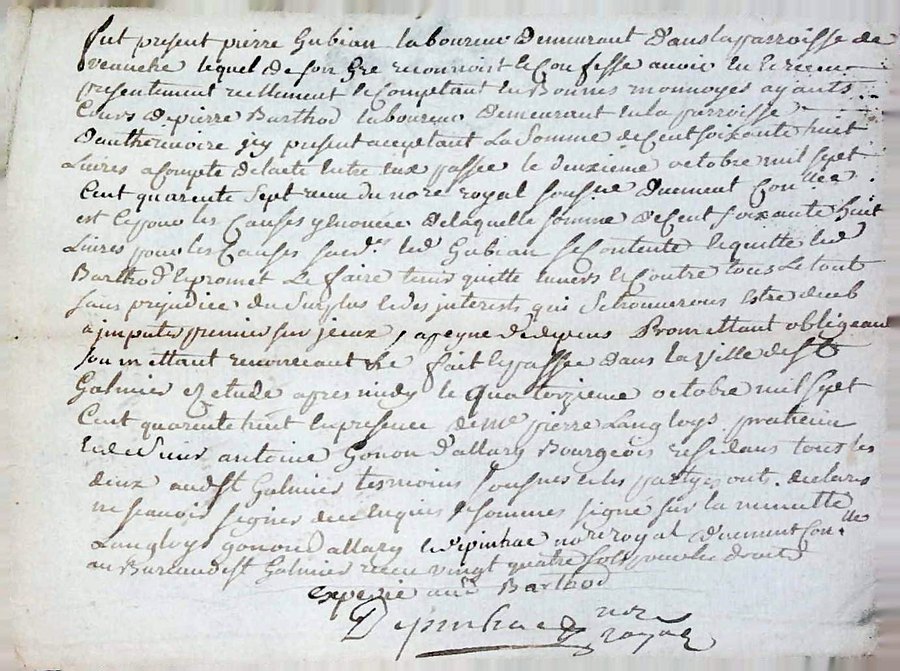 fut present pierre Gubian laboureur Demeurant Dans la parroisse de
veauche lequel de son gre reconnoist et Confesse avoir eu et receu
presentement reellement et Comptant en Bonnes monnoyes ayants
Cours De pierre Barthod laboureur Demeurant en la parroisse
Dauthezinoire jcy present acceptant La Somme de Cent soixante huit
Livres a Compte de lacte entre eux passée le deuxieme octobre mil sept
Cent quarente sept receu du nore royal sousne Duement Conllée
est et pour les Causes y enoncée De laquelle somme de Cent soixante huit
Livres pour les Causes susd. led Gubian se Contente et quitte led
Barthod et promet Le faire tenir quitte envers et Contre tous Le tout
sans prejudice du surplus et des interests qui se trouverons Estre deub
a imputer premier sur jceux, a peyne de depens Promettant obligeant
soumettant renonceant &e fait et passée dans la ville de St
Galmier & etude apres midy le quatorzieme octobre mil sept
Cent quarente huit en presence de me pierre Langloys praticien
et de sieur antoine Gonon D'allary Bourgeois residans tous les
deux aud St Galmier tesmoins sousnes et les partyes ont declarés
ne scavoir signer de ce enquis & sommés signé sur la minutte
Langloys gonon Dallary & Depinhac nore royal Duement Con.llé
au Bureau de St Galmier receu vingt quatre sols pour les droits
expedié aud Barthod
Depinhac nore
royal